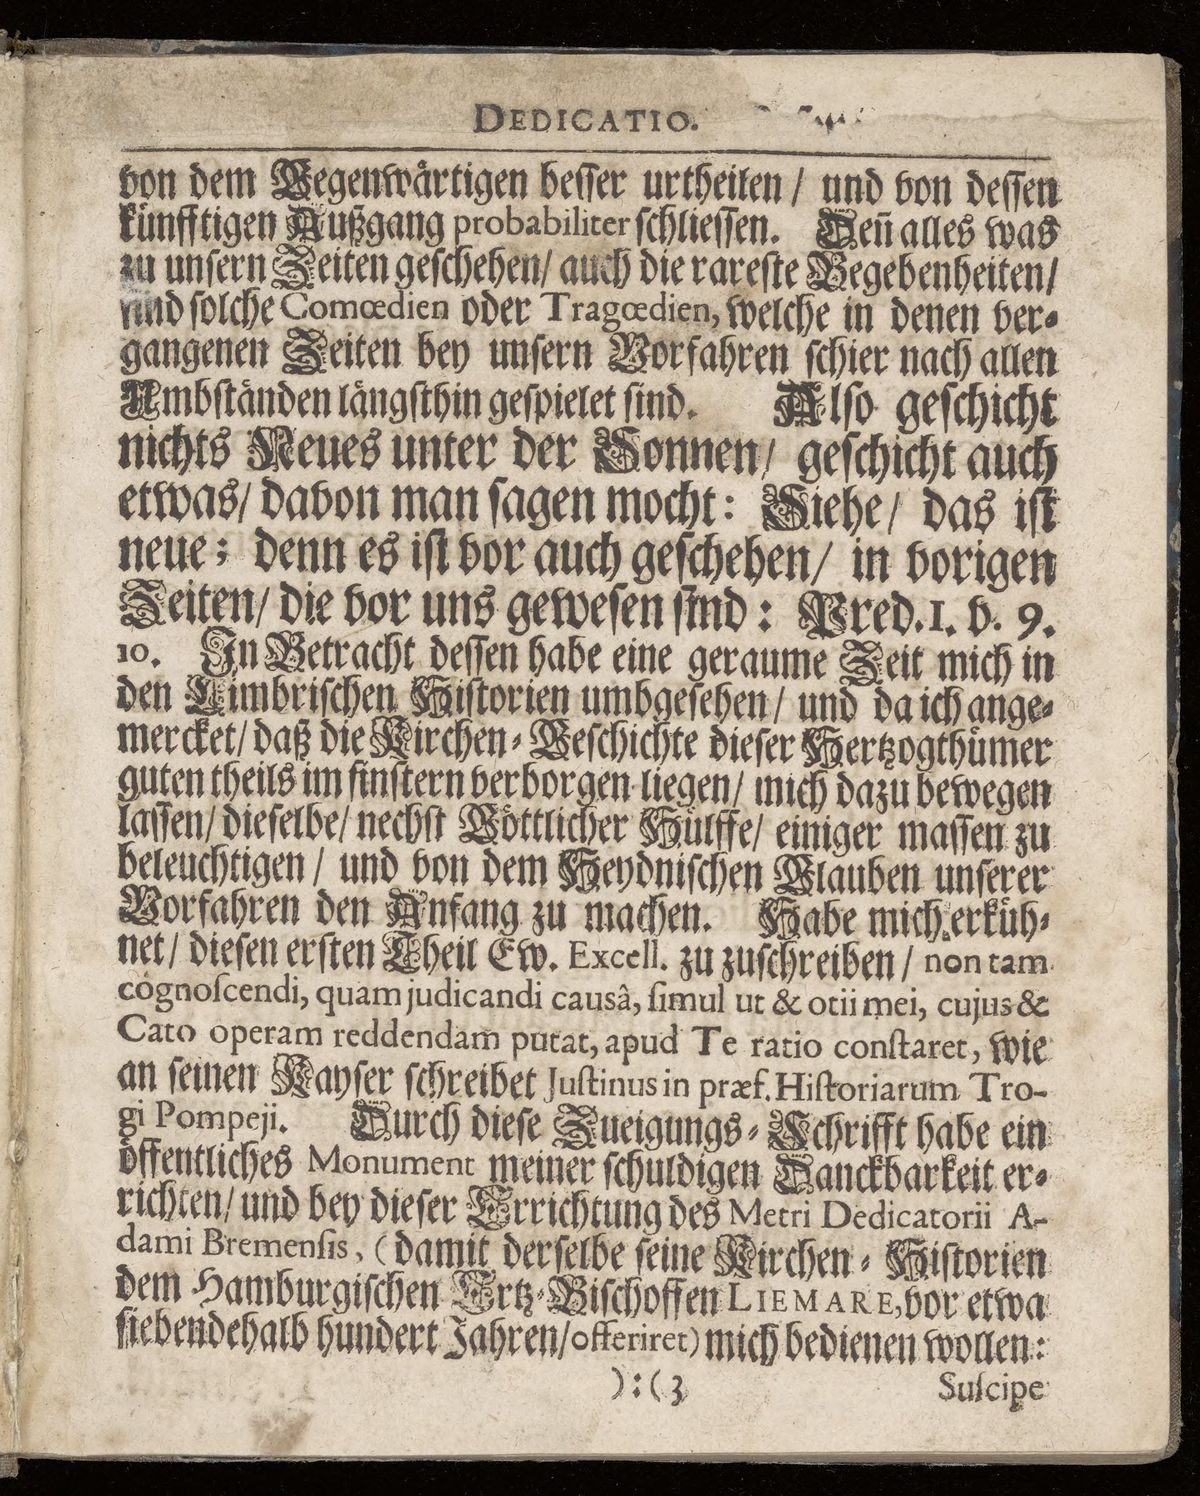 DEDICATIO.
von dem Gegenwärtigen besser urtheilen / und von dessen
künfftigen Außgang probabiliter schliessen. Deñ alles was
zu unsern Zeiten geschehen/ auch die rareste Begebenheiten/
sind solche Comœdien oder Tragœdien, welche in denen ver-
gangenen Zeiten bey unsern Vorfahren schier nach allen
Umbständen längsthin gespielet sind. Also geschicht
nichts Neues unter der Sonnen/ geschicht auch
etwas/ davon man sagen mocht: Siehe/ das ist
neue; denn es ist vor auch geschehen/ in vorigen
Zeiten/ die vor uns gewesen sind: Pred. 1. v. 9.
10. In Betracht dessen habe eine geraume Zeit mich in
den Cimbrischen Historien umbgesehen/ und da ich ange-
mercket/ daß die Kirchen-Geschichte dieser Hertzogthümer
guten theils im finstern verborgen liegen/ mich dazu bewegen
lassen/ dieselbe/ nechst Göttlicher Hülffe/ einiger massen zu
beleuchtigen / und von dem Heydnischen Glauben unserer
Vorfahren den Anfang zu machen. Habe mich erküh-
net/ diesen ersten Theil Ew. Excell. zu zuschreiben / non tam
cógnoscendi, quam judicandi causâ, simul ut & otii mei, cujus &
Cato operam reddendam putat, apud Te ratio constaret, wie
an seinen Kayser schreibet Justinus in præf. Historiarum Tro-
gi Pompeji. Durch diese Zueigungs-Schrifft habe ein
öffentliches Monument meiner schuldigen Danckbarkeit er-
richten/ und bey dieser Errichtung des Metri Dedicatorii A-
dami Bremensis, (damit derselbe seine Kirchen-Historien
dem Hamburgischen Ertz-Bischoffen LIEMARE, vor etwa
siebendehalb hundert Jahren/ offeriret) mich bedienen wollen:
):(3 Suscipe